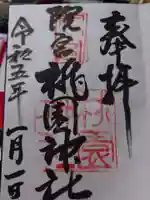 奉拝
院宮 桃園神社
令和五年 一月一日